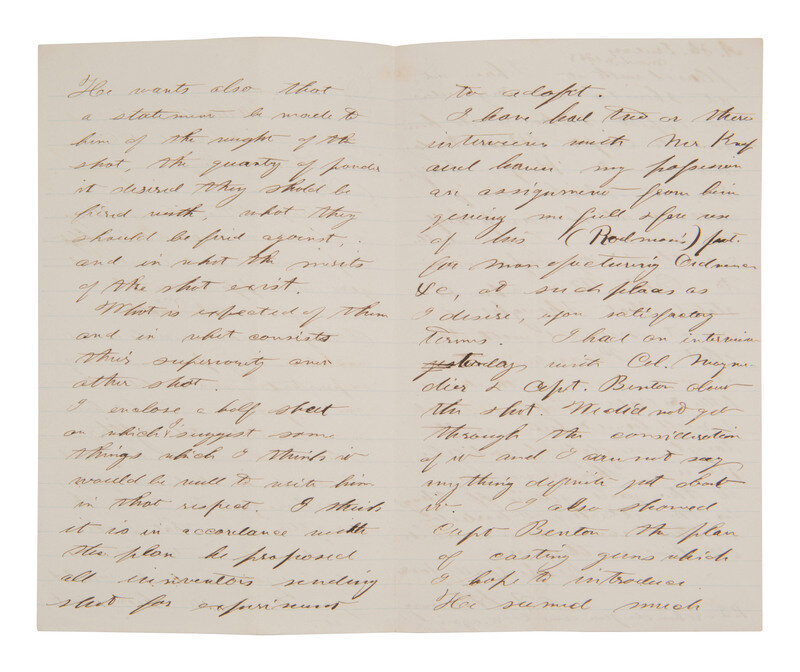 He wants also that
a statement be made to
him of the weight of the
shot, the quantity of powder
it desired they shold be
fired with, what they
should be fired against,
and in what the merits
of the shot exist.
What is expected of them
and in what consists
their superiority over
other shot.
I enclose a half sheet
on which I suggest some
things which I think it
would be well to write him
in that respect. I think
it is in accordance with
the plan he proposed
all inventors sending
shot for experiment
to adopt.
I have had two or three
interviews with Mr. Knap
and have in my possession
an assignment from him
giving me full & free use
of his (Rodman's) pat.
for manufacturing Ordnance
&c, at such places as
I desire, upon satisfactory
terms. I had an interview
yesterday with Col. Mayna-
dier & Capt. Benton about
the shot. We did not get
through the consideration
of it and I can not say
anything definite yet about
it. I also showed
Capt Benton the plan
of casting guns which
I hope to introduce.
He seemed much